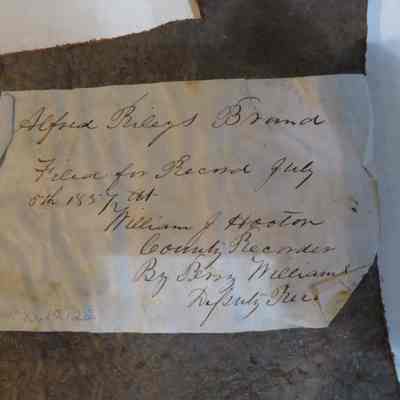 Alfred Rileys Brand
Filed for Record July
5th 1857 At
William J Hooton
County Recorder
By Berry Williams
Deputy Rec